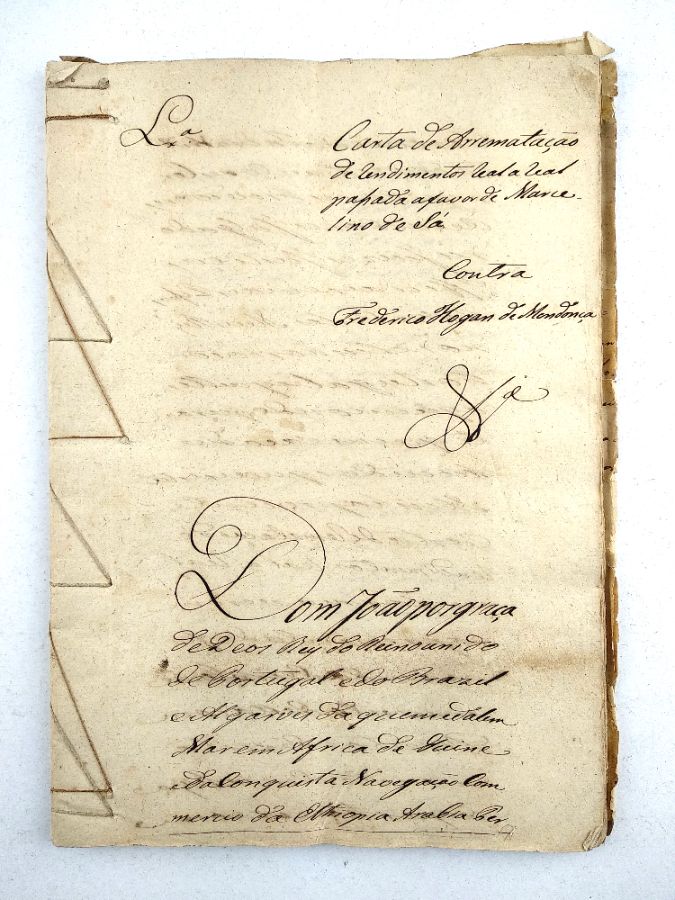 L.ª
Carta de Arrematação
de rendimentos real a real
pasada a favor de Marce-
lino de Sá
Contra
Frederico Hogan de Mendonça
Dom João por graça
de Deos Rey do Reino unido
de Portugal e do Brazil
e Algarves daquem e dalem
Mar em Africa de Guine
e da Conquista Navegação Com
mercio da Ethiopia Arabia Per